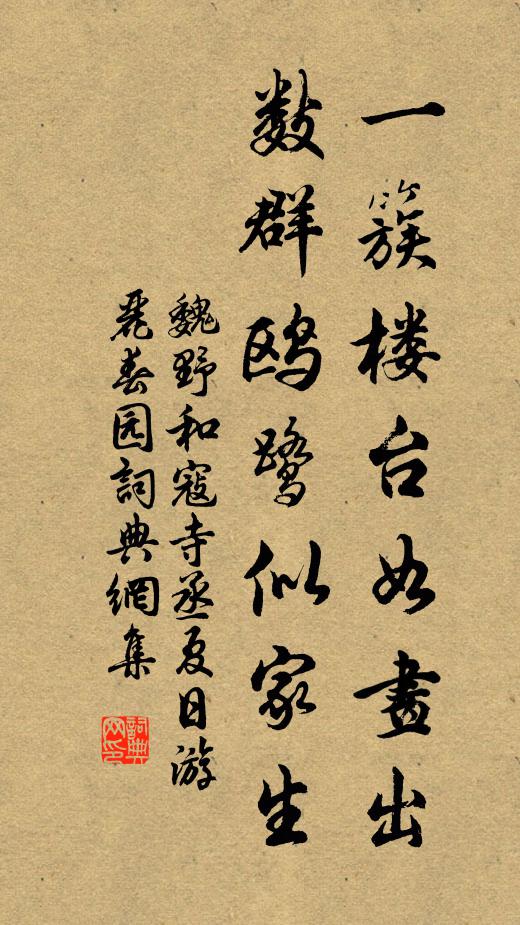 一簇楼台如畫出
数群鸥鹭似家生
魏野和寇寺丞夏日游
麗春园詞典網集
詞典网印